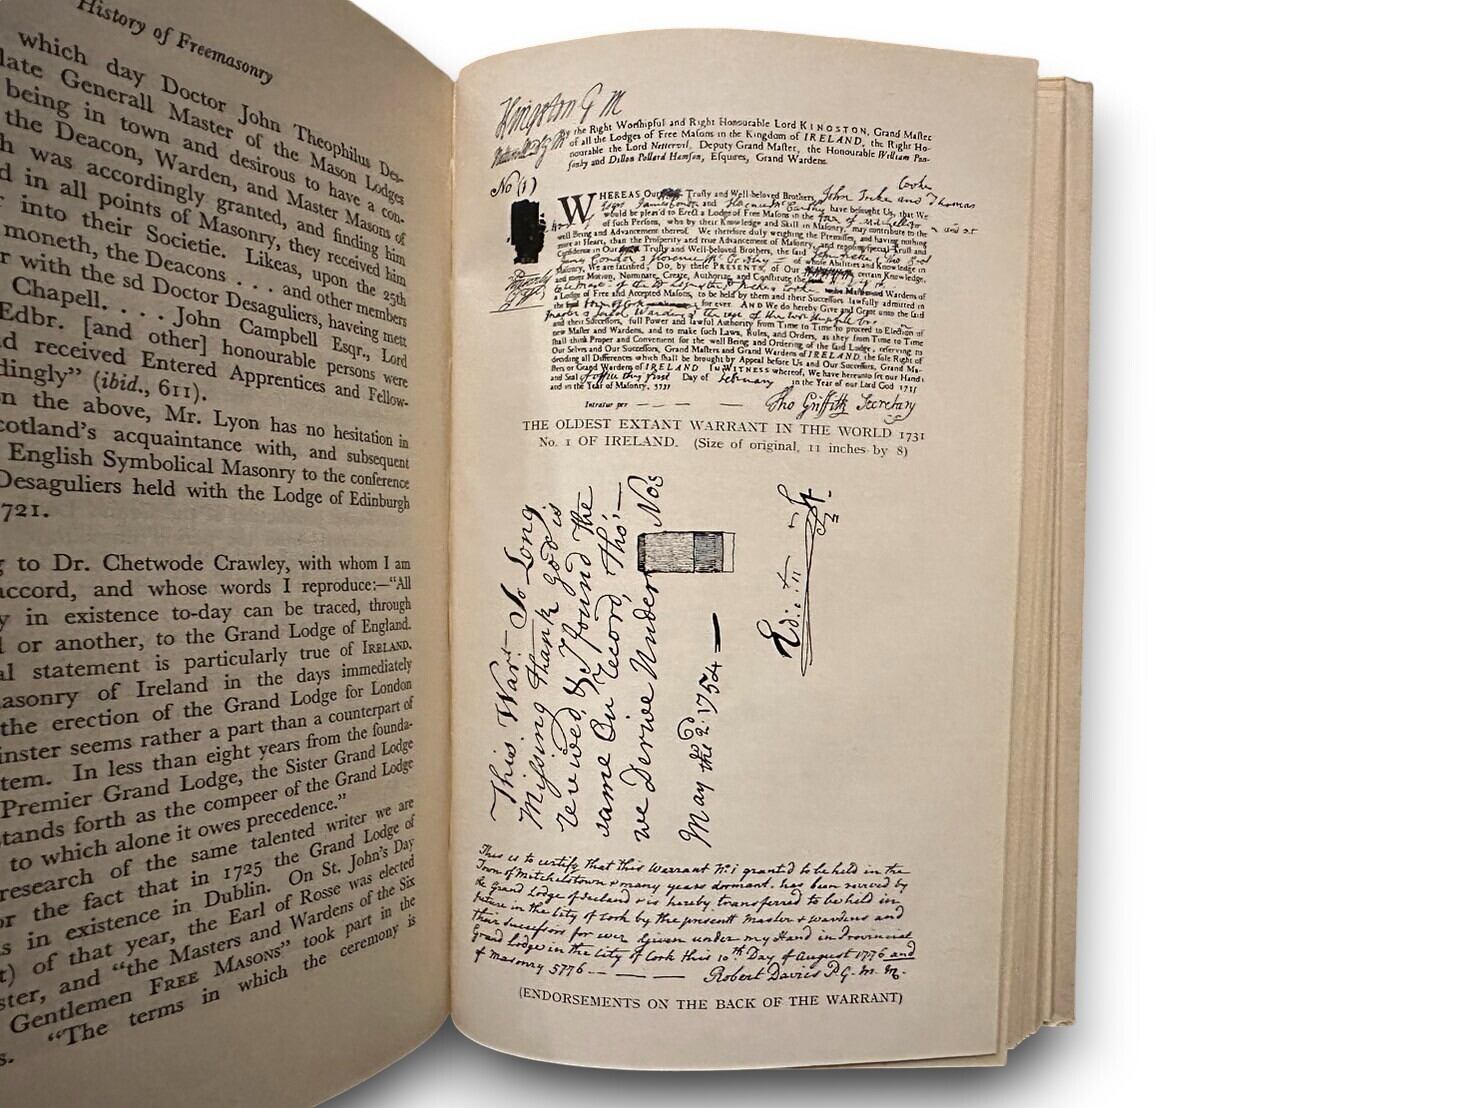 History of Freemasonry
which day Doctor John Theophilus Des-
late Generall Master of the Mason Lodges
being in town and desirous to have a con-
the Deacon, Warden, and Master Masons of
was accordingly granted, and finding him
in all points of Masonry, they received him
into their Societie. Likeas, upon the 25th
moneth, the Deacons . . . and other members
with the sd Doctor Desaguliers, haveing mett
Chapell. . . . John Campbell Esqr., Lord
Edbr. [and other] honourable persons were
received Entered Apprentices and Fellow-
dingly" (ibid., 611).
on the above, Mr. Lyon has no hesitation in
cotland's acquaintance with, and subsequent
English Symbolical Masonry to the conference
Desaguliers held with the Lodge of Edinburgh
721.
to Dr. Chetwode Crawley, with whom I am
accord, and whose words I reproduce:—"All
in existence to-day can be traced, through
or another, to the Grand Lodge of England.
al statement is particularly true of IRELAND.
asonry of Ireland in the days immediately
the erection of the Grand Lodge for London
inster seems rather a part than a counterpart of
tem. In less than eight years from the founda-
Premier Grand Lodge, the Sister Grand Lodge
stands forth as the compeer of the Grand Lodge
to which alone it owes precedence."
research of the same talented writer we are
or the fact that in 1725 the Grand Lodge of
s in existence in Dublin. On St. John's Day
of that year, the Earl of Rosse was elected
ster, and "the Masters and Wardens of the Six
Gentlemen FREE MASONS" took part in the
"The terms in which the ceremony is
Kingston G M
By the Right Worshipful and Right Honourable Lord KINGSTON, Grand Master
of all the Lodges of Free Masons in the Kingdom of IRELAND, the Right Ho-
nourable the Lord Nettervil, Deputy Grand Master, the Honourable William Pon-
sonby and Dillon Pollard Hamson, Esquires, Grand Wardens.
No (1)
Cooke
WHEREAS Our Trusty and Well-beloved Brothers, John Inke and Thomas
Esqrs James Condon and have brought Us, that We
would be pleas'd to Erect a Lodge of Free Masons in the
of such Persons, who by their Knowledge and Skill in Masonry, may contribute to the
well Being and Advancement thereof. We therefore duly weighing the Premisses, and having nothing
more at Heart, than the Prosperity and true Advancement of Masonry, and reposing special Trust and
Confidence in Our Trusty and Well-beloved Brothers, the said
of whose Abilities and Knowledge in
Masonry, We are satisfied; Do, by these PRESENTS, of Our certain Knowledge,
and meer Motion, Nominate, Create, Authorize and Constitute
Wardens of
a Lodge of Free and Accepted Masons, to be held by them and their Successors lawfully admitted in
the said for ever. AND We do hereby Give and Grant unto the said
and their Successors, full Power and lawful Authority from Time to Time to proceed to Election of
new Master and Wardens, and to make such Laws, Rules, and Orders, as they from Time to Time
shall think Proper and Convenient for the well Being and Ordering of the said Lodge, reserving to
Our Selves and Our Successors, Grand Masters and Grand Wardens of IRELAND, the sole Right of
deciding all Differences which shall be brought by Appeal before Us and Our Successors, Grand Ma-
sters or Grand Wardens of IRELAND. IN WITNESS whereof, We have hereunto set our Hands
and Seal of office this first Day of February in the Year of our Lord God 1731
and in the Year of Masonry, 5731
Intratur per
Tho Griffith Secretary
THE OLDEST EXTANT WARRANT IN THE WORLD 1731
No. 1 OF IRELAND. (Size of original, 11 inches by 8)
This Warrt So Long
Missing thank god is
revived, & I found the
same On record, tho'—
we Derive Under No 3
May the 2d: 1754 —
This is to certify that this Warrant No. 1 granted to be held in the
Town of Mitchelstown & many years dormant, has been revived by
the Grand Lodge of Ireland & is hereby transferred to be held in
future in the City of Cork by the present Master & Wardens and
their successors for ever Given under my Hand in Provincial
Grand Lodge in the City of Cork this 10th Day of August 1776 and
of Masonry 5776 — — Robert Davis P. G. M. M.
(ENDORSEMENTS ON THE BACK OF THE WARRANT)